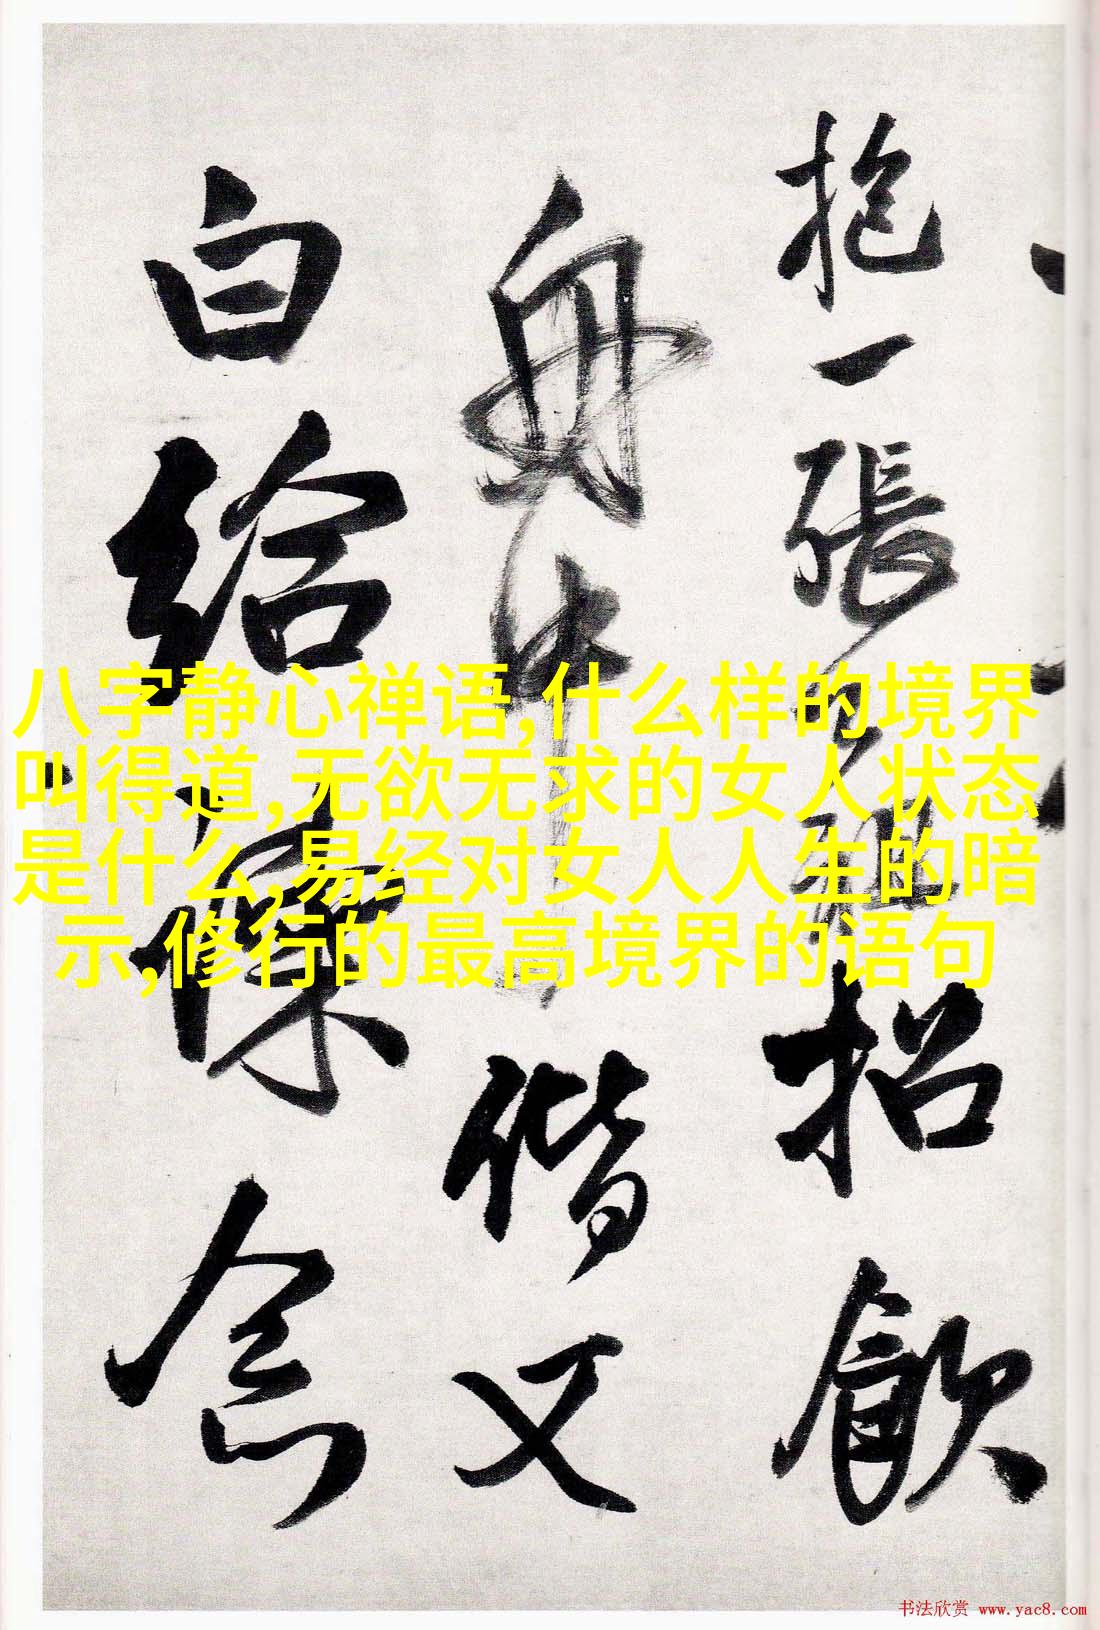 抱一張
招飲
舟中
偕又
白給
念
八字静心禅语,什么样的境界
叫得道,无欲无求的女人状态
是什么,易经对女人人生的暗
示,修行的最高境界的语句
书法欣赏 www.yac8.com